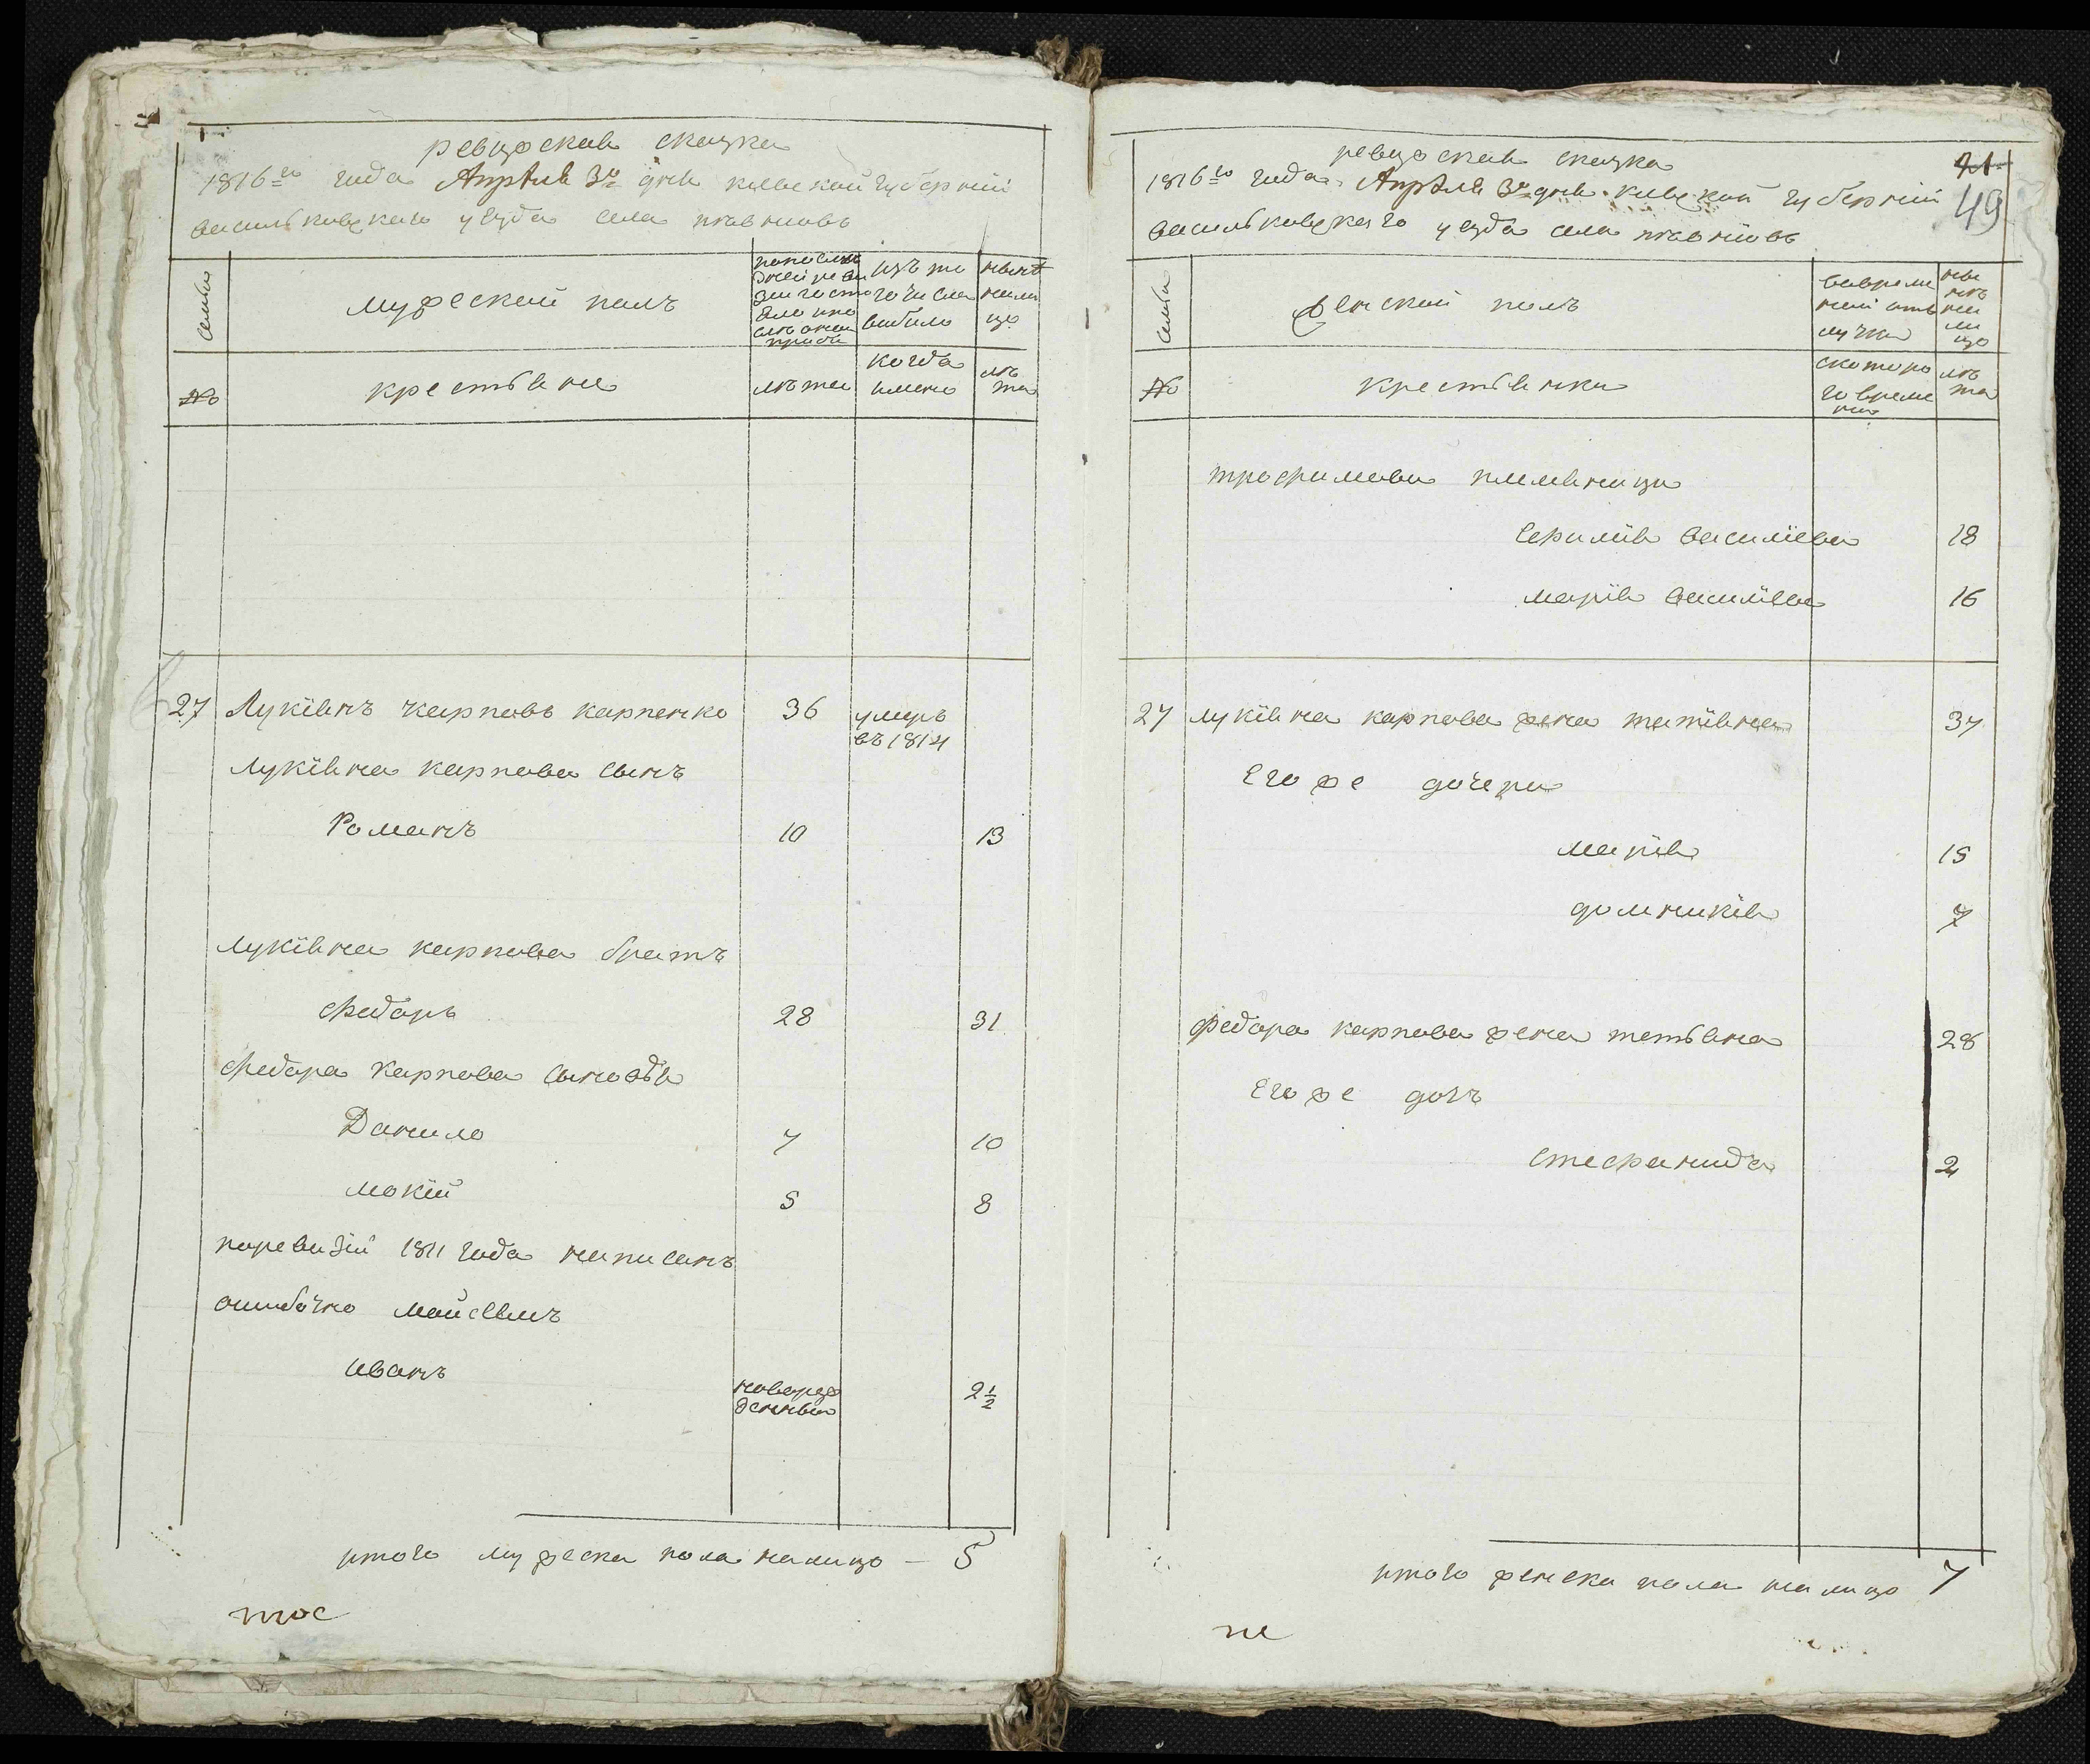 ревизская сказка
1816го года Апреля 3го дня киевской губернiи
васильковскаго уезда села пивновъ
семьи
мужеской полъ
по последней ревизiи состояло и после оной прибыло
изъ того числа выбыло
ныне на лицо
№
крестьяне
лета
когда имено
лета
27 Лукiянъ карповъ карпенко 36 умеръ въ 1814
лукiяна карпова сынъ
Романъ 10 13
лукiяна карпова братъ
Федоръ 28 31
Федора карпова сыновья
Данило 7 10
мокiй 5 8
поревизiи 1811 года написанъ
ошибочно мойсеемъ
иванъ новорожденный 2 1/2
итого мужеска пола налицо — 5
тос
ревизская сказка
1816го года Апреля 3го дня киевской губернiи
васильковскаго уезда села пивновъ
21
49
семьи
Женской полъ
во временной отлучке
ныне на лицо
№
крестьянки
скотораго времени
лета
трофимови племяници
Ефимiя василiева 18
марiя василiева 16
27 лукiяна карпова жена татiяна 37
Егоже дочери
марiя 15
домникiя 7
Федора карпова жена татьяна 28
Егоже дочъ
стефанида 2
итого женска пола налицо 7